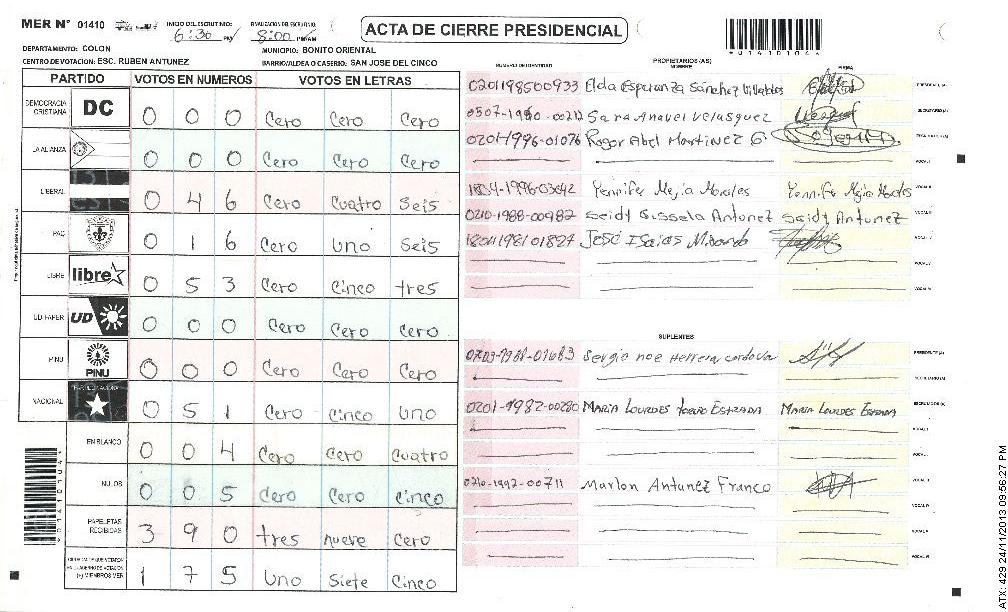 MER Nº 01410 INICIO DEL ESCRUTINIO: 6:30 PM FINALIZACION DEL ESCRUTINIO: 8:00 PM/AM
ACTA DE CIERRE PRESIDENCIAL
DEPARTAMENTO: COLON MUNICIPIO: BONITO ORIENTAL
CENTRO DE VOTACION: ESC. RUBEN ANTUNEZ BARRIO/ALDEA O CASERIO: SAN JOSE DEL CINCO
PARTIDO VOTOS EN NUMEROS VOTOS EN LETRAS
DEMOCRACIA CRISTIANA DC 0 0 0 Cero Cero Cero
LA ALIANZA 0 0 0 Cero Cero Cero
LIBERAL 0 4 6 Cero Cuatro Seis
PAC 0 1 6 Cero Uno Seis
LIBRE libre 0 5 3 Cero Cinco tres
UD-FAPER UD 0 0 0 Cero Cero Cero
PINU PINU 0 0 0 Cero Cero Cero
NACIONAL 0 5 1 Cero Cinco Uno
EN BLANCO 0 0 4 Cero Cero Cuatro
NULOS 0 0 5 Cero Cero Cinco
PAPELETAS RECIBIDAS 3 9 0 tres nueve Cero
(+) MIEMBROS MER 1 7 5 Uno Siete Cinco
PROPIETARIOS (AS)
NUMERO DE IDENTIDAD NOMBRE FIRMA
020198500933 Elda Esperanza Sánchez PRESIDENTE (A)
0507-1990-00212 Sara Anavel Velasquez SECRETARIO (A)
0201-1996-01076 Roger Abel Martinez G.
VOCAL I
1804-1996-03642 Yennifer Mejia Morales Yennifer Mejia Morales VOCAL II
0210-1988-00982 Seidy Gissela Antunez Seidy Antunez
1801198101827 José Isaias Mirando
SUPLENTES
Sergio noe Herrera cordova PRESIDENTE (A)
SECRETARIO (A)
0201-1982-00280 MARIA LOURDES ESTRADA MARIA LOURDES ESTRADA ESCRUTADOR (A)
VOCAL I
0210-1992-00711 Marlon Antunez Franco
ATX: 429 24/11/2013 09:56:27 PM